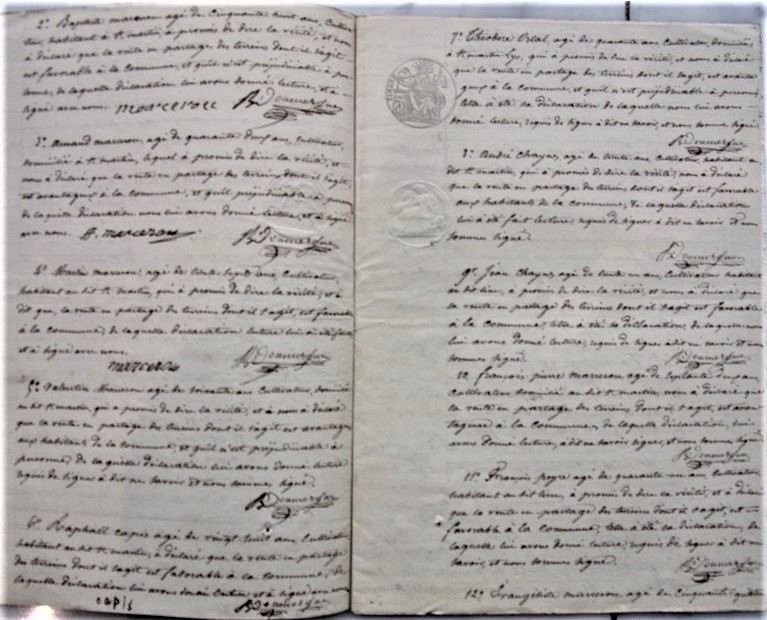 2° Baptiste marcerou agé de Cinquante huit ans, Cultiva
teur, habitant à St martin à promis de dire la vérité, et nous
a déclaré que la vente en partage des terrains dont il s'agit
est favorable à la commune, et qu'il n'est préjudiciable à per
sonne, de laquelle déclaration lui avons donné lecture, et à
signé avec nous. marcerou BDoumergue
3° Amand marcerou, agé de quarante deux ans, cultivateur,
domicilié à St martin, lequel à promis de dire la vérité, et
nous à déclaré que la vente en partage des terrains dont il s'agit
est avantageux à la commune, et qu'il préjudiciable à personne
de laquelle déclaration nous lui avons donné lecture, et à signé
avec nous. A. marcerou BDoumergue
4° Martin marcerou, agé de trente sept ans, Cultivateur,
habitant au dit St martin, qui à promis de dire la vérité, et à
dit que, la vente en partage des terrains dont il s'agit, est favorable
à la commune, de laquelle déclaration lecture lui à été faite
et à signé avec nous.
marcerou BDoumergue
5° Valentin Marcerou agé de soixante ans Cultivateur, domicilié
au dit St martin, qui a promis de dire la vérité, et à nous à déclaré
que la vente en partage des terrains dont il s'agit est avantageux
aux habitants de la commune, et qu'il n'est préjudiciable à
personne, de laquelle déclaration lui avons donné lecture
requis de signer à dit ne savoir et nous sommes signé.
BDoumergue
6° Raphaël capis agé de vingt huit ans, Cultivateur
habitant au dit St martin, à déclaré que la vente en partage
des terrains dont il s'agit est favorable à la commune, de
laquelle déclaration lui avons donné lecture et à signé
capis BDoumergue
7° Théodore agé de quarante ans, Cultivateur, domicilié
à St martin Lys, qui à promis de dire la vérité, et nous à déclaré
que la vente en partage des terrains dont il s'agit, est avanta
geux à la Commune, et qu'il n'est préjudiciable à personne
telle à été sa déclaration de laquelle nous lui avons
donné lecture, requis de signer à dit ne savoir, et nous sommes signé
BDoumergue
8° André Chayus, agé de trente ans, Cultivateur, habitant au
dit St martin, qui à promis de dire la vérité, nous à déclaré
que la vente en partage des terrains dont il s'agit est favorable
aux habitants de la commune, de laquelle déclaration
lui à été fait lecture, requis de signer à dit ne savoir et nous
sommes signé.
BDoumergue
9° Jean Chayus, agé de trente un ans, Cultivateur habitant
au dit lieu, à promis de dire la vérité, et nous à déclaré que
la vente en partage des terrains dont il s'agit est favorable
à la commune, telle à été sa déclaration, de laquelle nous
lui avons donné lecture, requis de signer à dit ne savoir et nous
sommes signé. BDoumergue
10. François pierre marcerou, agé de ans
Cultivateur domicilié au dit St martin, nous à déclaré que
la vente en partage des terrains dont il s'agit, est avan
tageux à la Commune, de laquelle déclaration, lui
avons donné lecture, à dit ne savoir signer, et nous sommes signé
BDoumergue
11° François peyre agé de quarante un ans, Cultivateur
habitant au dit lieu, à promis de dire la vérité, et à déclaré
que la vente en partage des terrains dont il s'agit, est
favorable à la Commune, telle à été sa déclaration, de
laquelle lui avons donné lecture, requis de signer à dit ne
savoir, et nous sommes signé.
BDoumergue
12° marcerou agé de Cinquante quatre